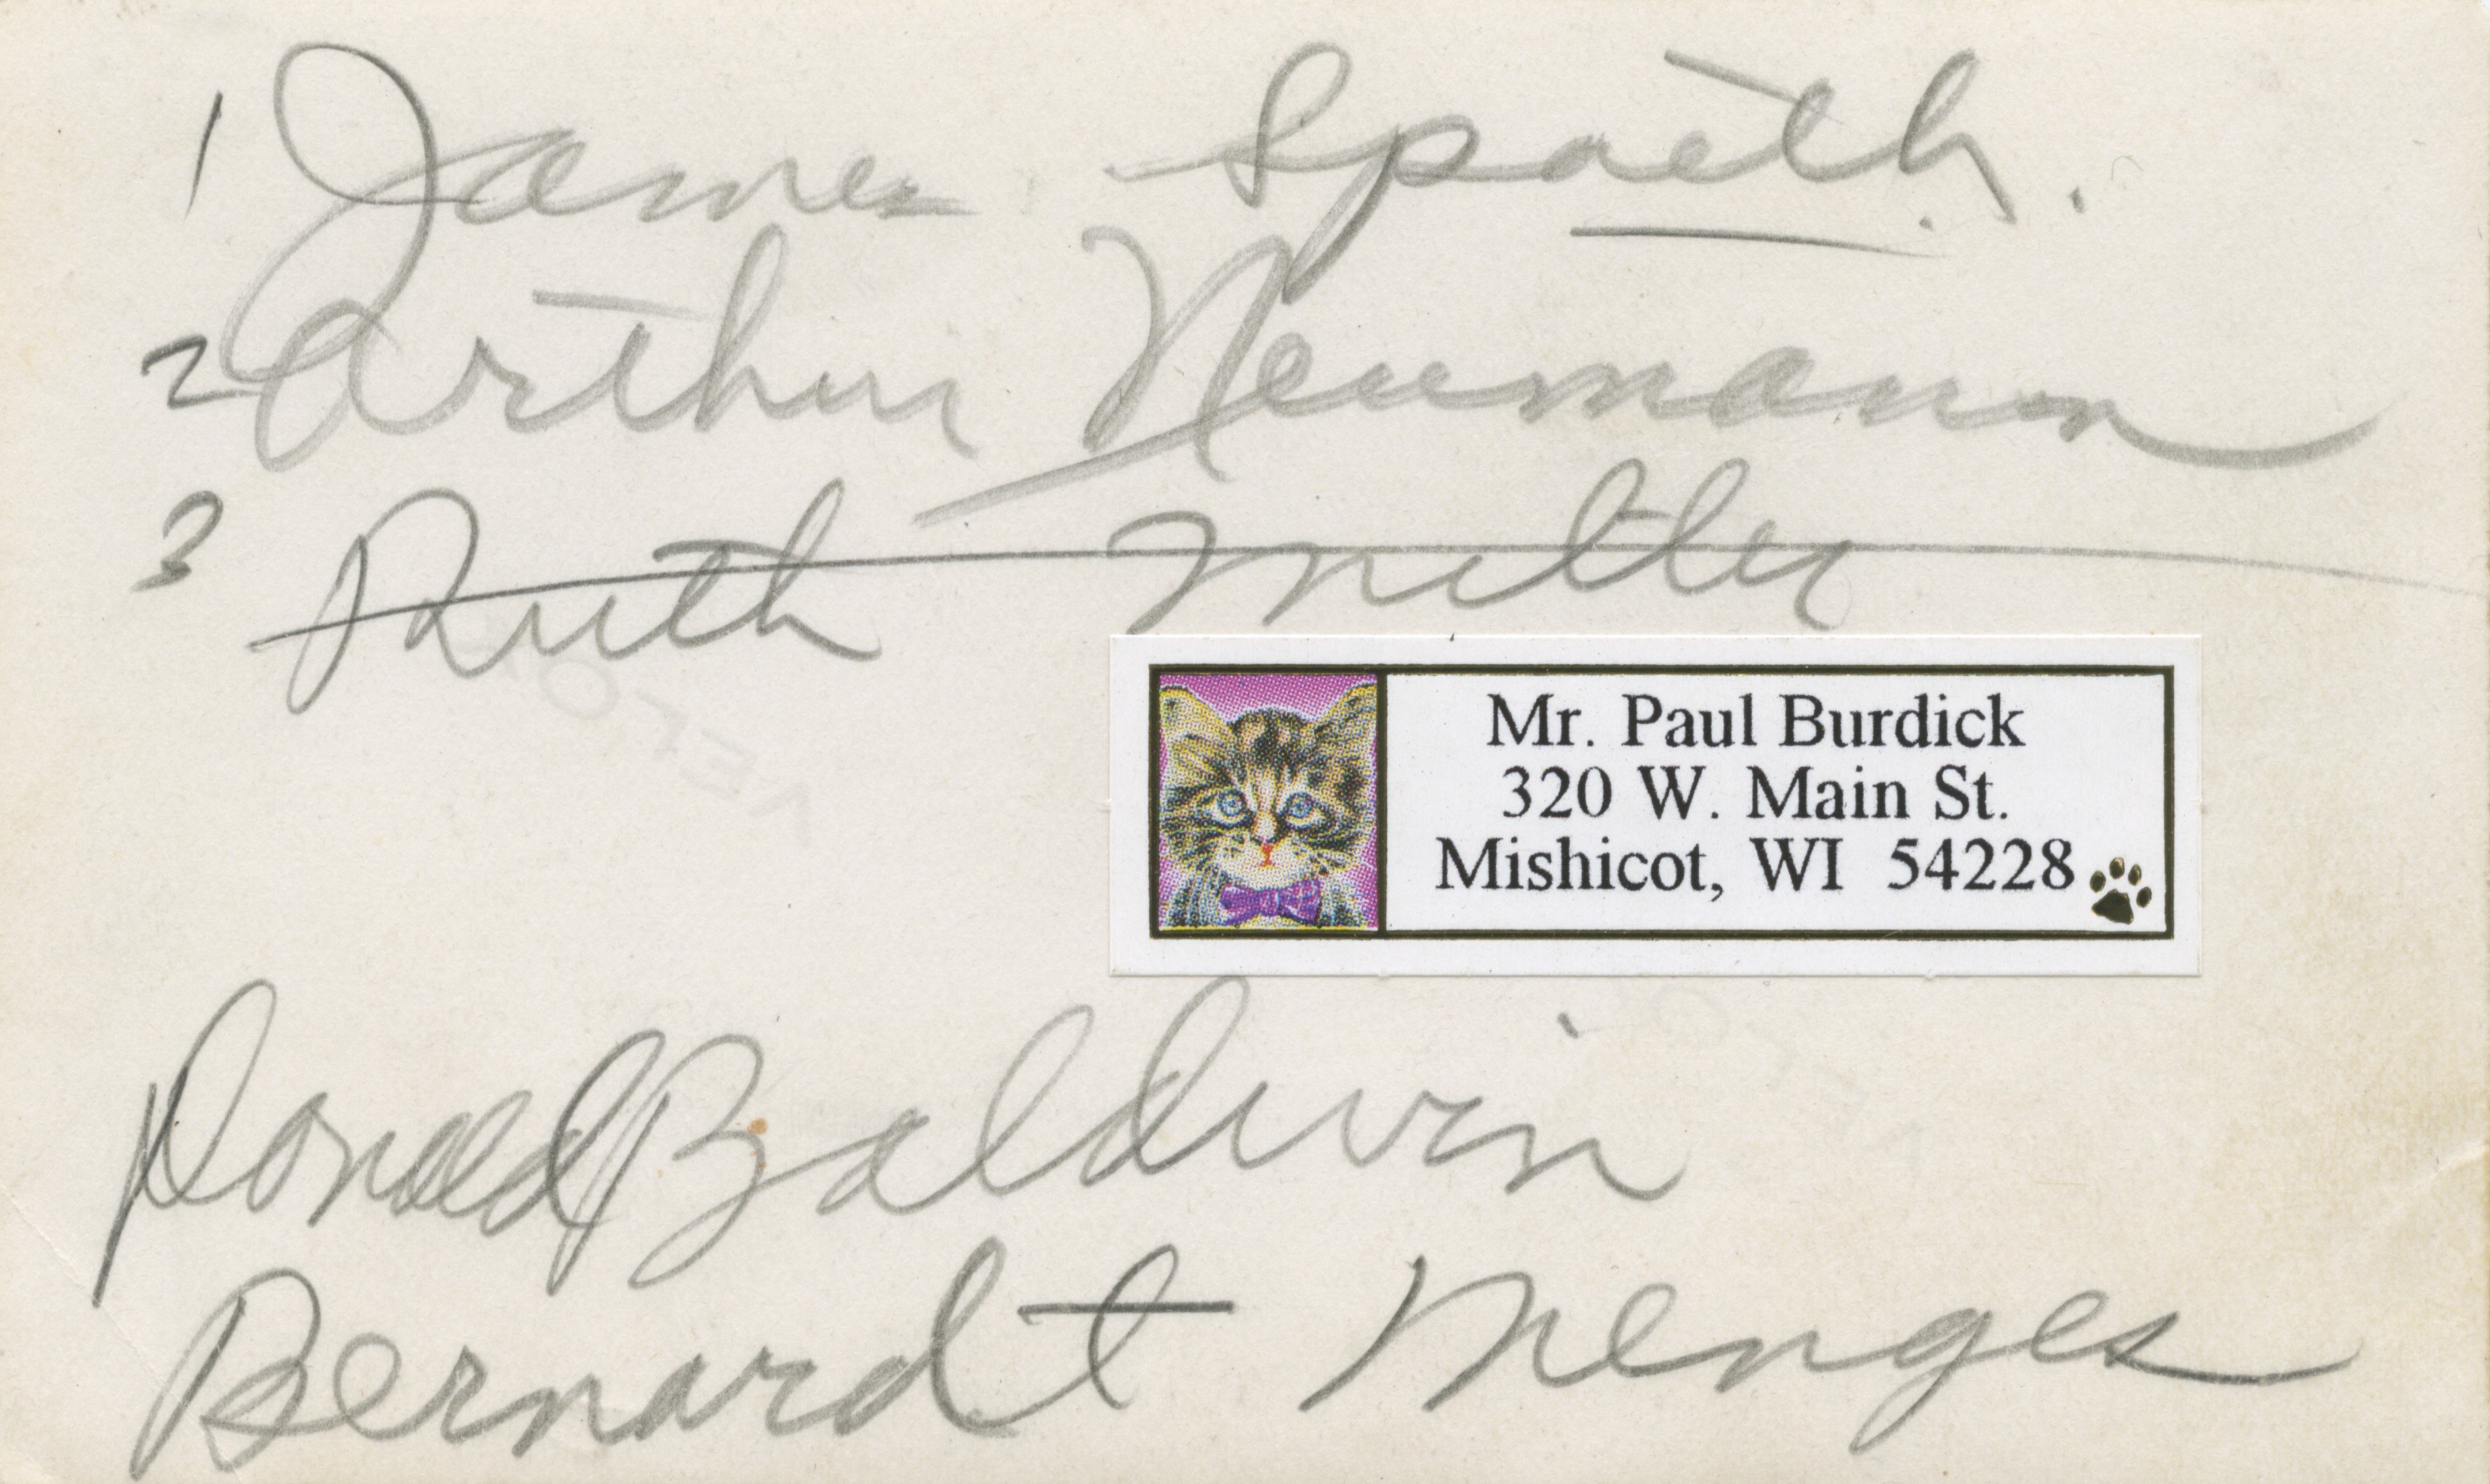 1 James Spaeth.
2 Arthur Neumann
3 Ruth Miller
Mr. Paul Burdick
320 W. Main St.
Mishicot, WI 54228
Donald Baldwin
Bernardt Menges